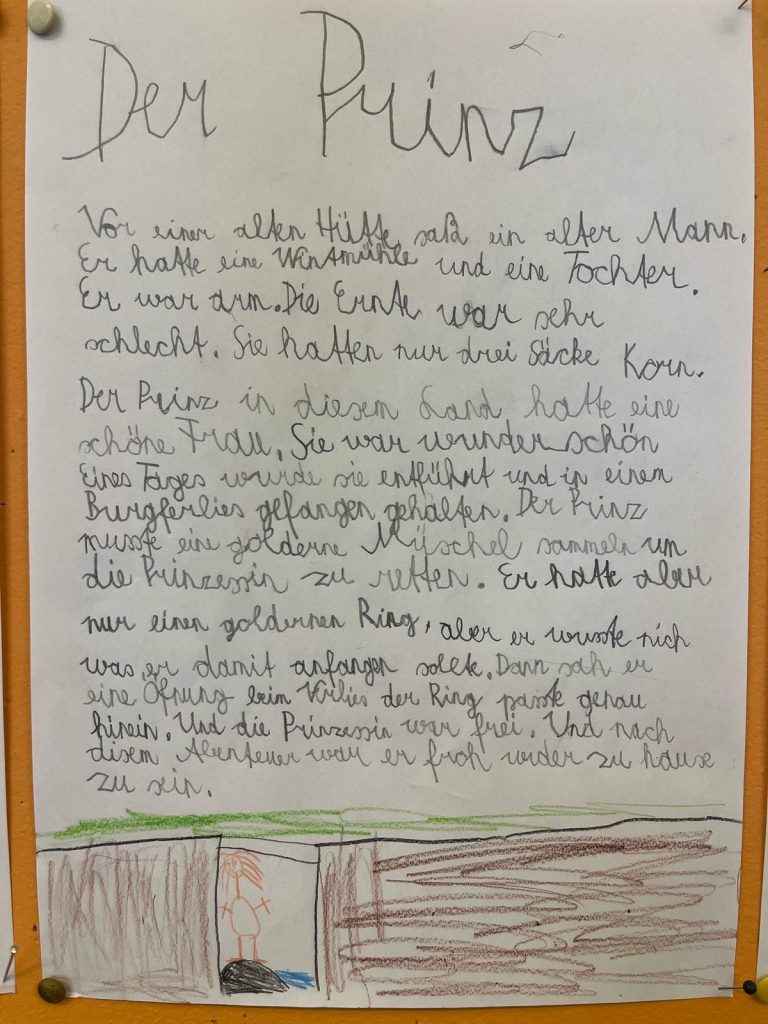 Der Prinz
Vor einer alten Hütte saß ein alter Mann.
Er hatte eine Wintmühle und eine Tochter.
Er war arm. Die Ernte war sehr
schlecht. Sie hatten nur drei Säcke Korn.
Der Prinz in diesem Land hatte eine
schöne Frau. Sie war wunderschön
Eines Tages wurde sie entführt und in einem
Burgferlies gefangen gehalten. Der Prinz
musste eine golderne Müschel sammeln um
die Prinzessin zu retten. Er hatte aber
nur einen goldernen Ring, aber er wusste nich
was er damit anfangen sollte. Dann sah er
eine Öfnung beim Verlies der Ring passte genau
hinein. Und die Prinzessin war frei. Und nach
disem Abenteuer war er froh wider zu hause
zu sein.